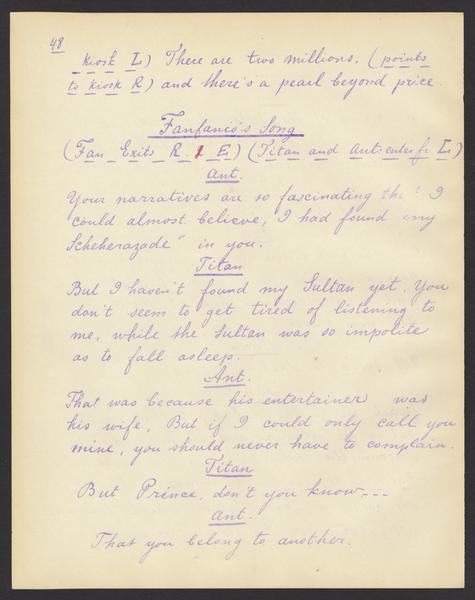 48
kiosk L) There are two millions, (points
to kiosk R) and there's a pearl beyond price.
Fanfanio's Song
(Fan Exits R. 1 E.) (Titan and Ant. enter fr L.)
Ant.
Your narratives are so fascinating tha' I
could almost believe, I had found my
Scheherazade" in you.
Titan
But I haven't found my Sultan yet, You
don't seem to get tired of listening to
me, while the Sultan was so impolite
as to fall asleep.
Ant.
That was because his entertainer was
his wife, But if I could only call you
mine, you should never have to complain.
Titan
But Prince, don't you know---
Ant.
That you belong to another.